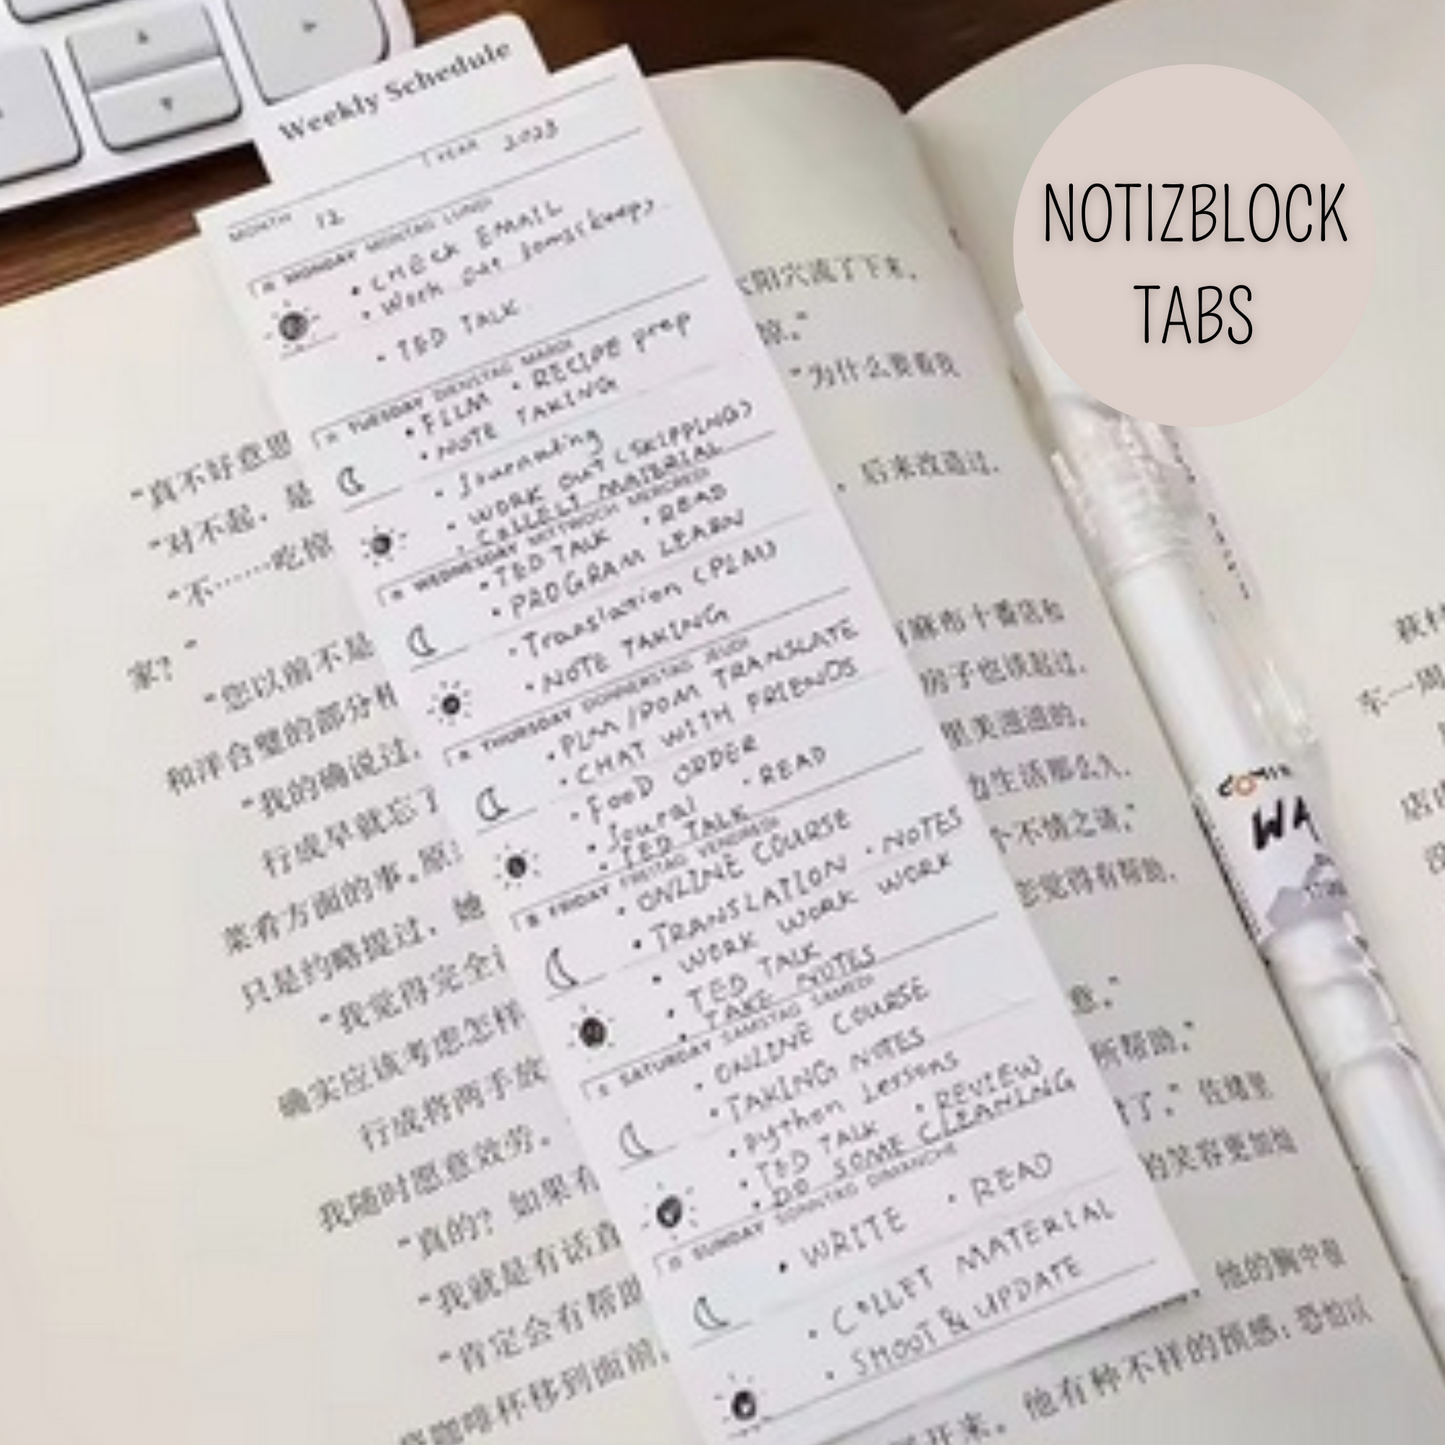 NOTIZBLOCK
TABS
Weekly Schedule
YEAR 2023
MONTH 12
MONDAY MONTAG LUNDI
• CHECK EMAIL
• Work out
• TED TALK
TUESDAY DIENSTAG MARDI
• FILM • RECIPE prep
• NOTE TAKING
• Journaling
• WORK OUT (SKIPPING)
• COLLECT MATERIAL
WEDNESDAY MITTWOCH MERCREDI
• TED TALK • READ
• PROGRAM LEARN
• Translation (PLM)
• NOTE TAKING
THURSDAY DONNERSTAG JEUDI
• PLM/POM TRANSLATE
• CHAT WITH FRIENDS
• FOOD ORDER
• Joural • READ
• TED TALK
FRIDAY FREITAG VENDREDI
• ONLINE COURSE
• TRANSLATION • NOTES
• WORK WORK WORK
• TED TALK
• TAKE NOTES
SATURDAY SAMSTAG SAMEDI
• ONLINE COURSE
• TAKING NOTES
• python Lessons
• TED TALK • REVIEW
• DO SOME CLEANING
SUNDAY SONNTAG DIMANCHE
• WRITE • READ
• COLLET MATERIAL
• SHOOT & UPDATE
“真不好意思
“对不起，是
“不……吃惊
家？”
“您以前不是
和洋合璧的部分
“我的确说过，
行成早就忘了
菜肴方面的事。原
只是约略提过，她
“我觉得完全
确实应该考虑怎样
行成将两手放
我随时愿意效劳。
“真的？如果有
“我就是有话直
“肯定会有帮助
咖啡杯移到面前，
阳穴流了下来，
惊。”
“为什么要看我
，后来改造过。
麻布十番店和
房子也谈起过。
里美滋滋的。
生活那么久，
个不情之请。”
觉得有帮助。
意。”
所帮助。”
了。”佐绪里
的笑容更加灿
他的胸中很
他有种不样的预感：恐怕以
WA